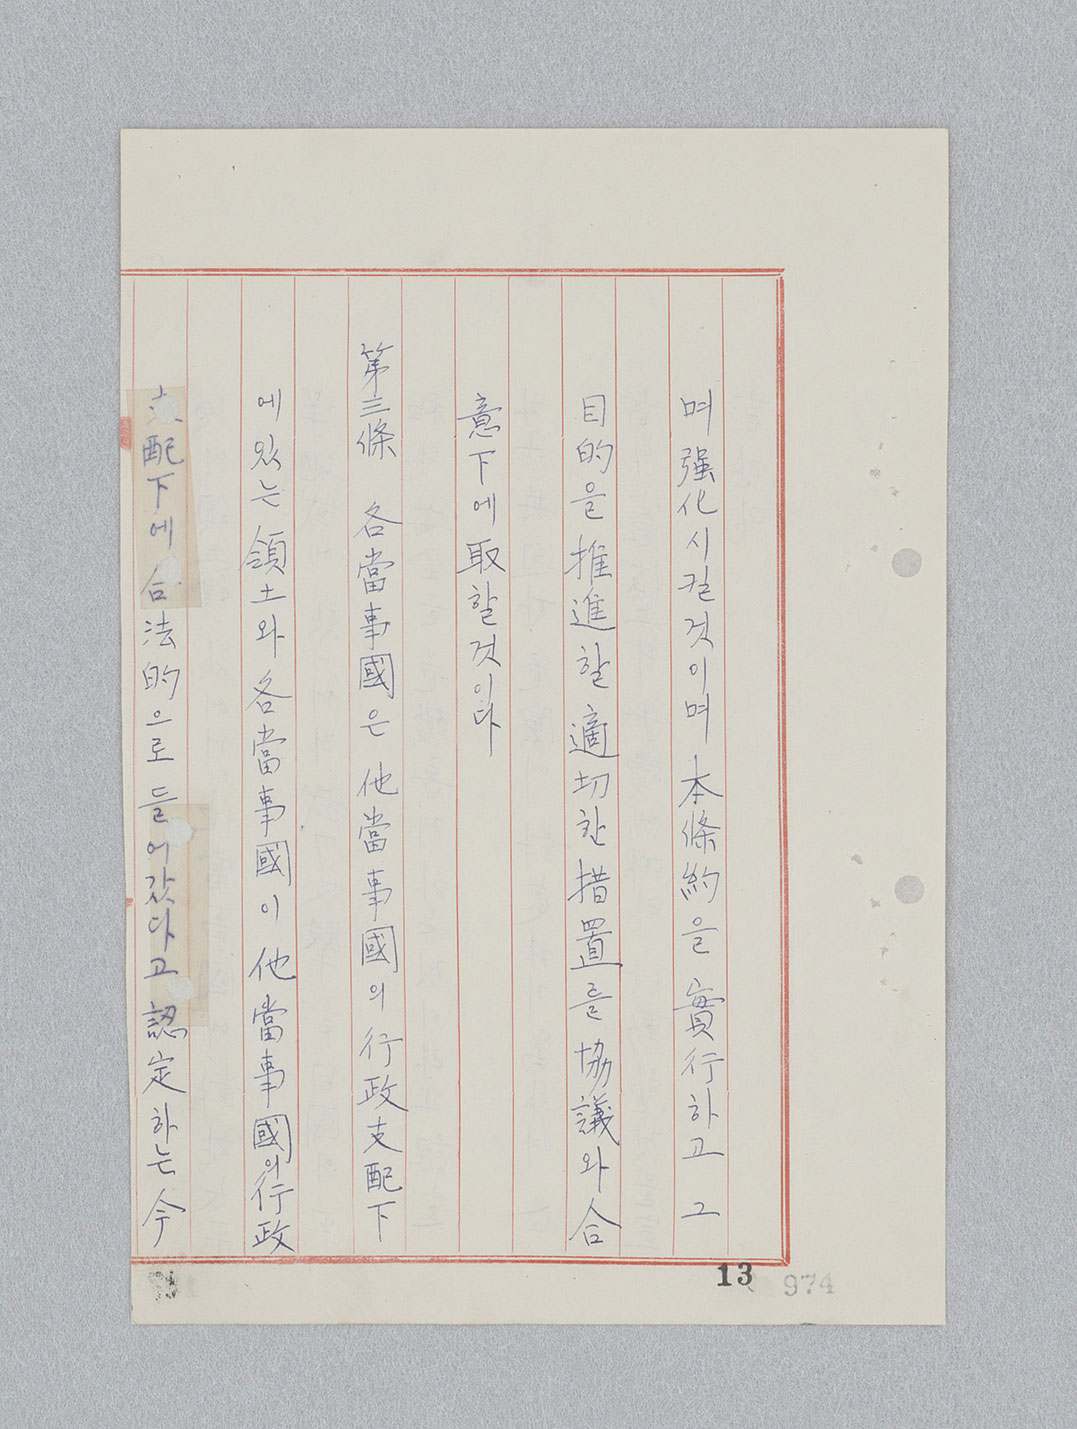 며强化시킬것이며本條約을實行하고그
目的을推進할適切한措置를協議와合
意下에取할것이다
第三條 各當事國은他當事國의行政支配下
에있는領土와各當事國이他當事國의行政
支配下에合法的으로들어갔다고認定하는今
13 974